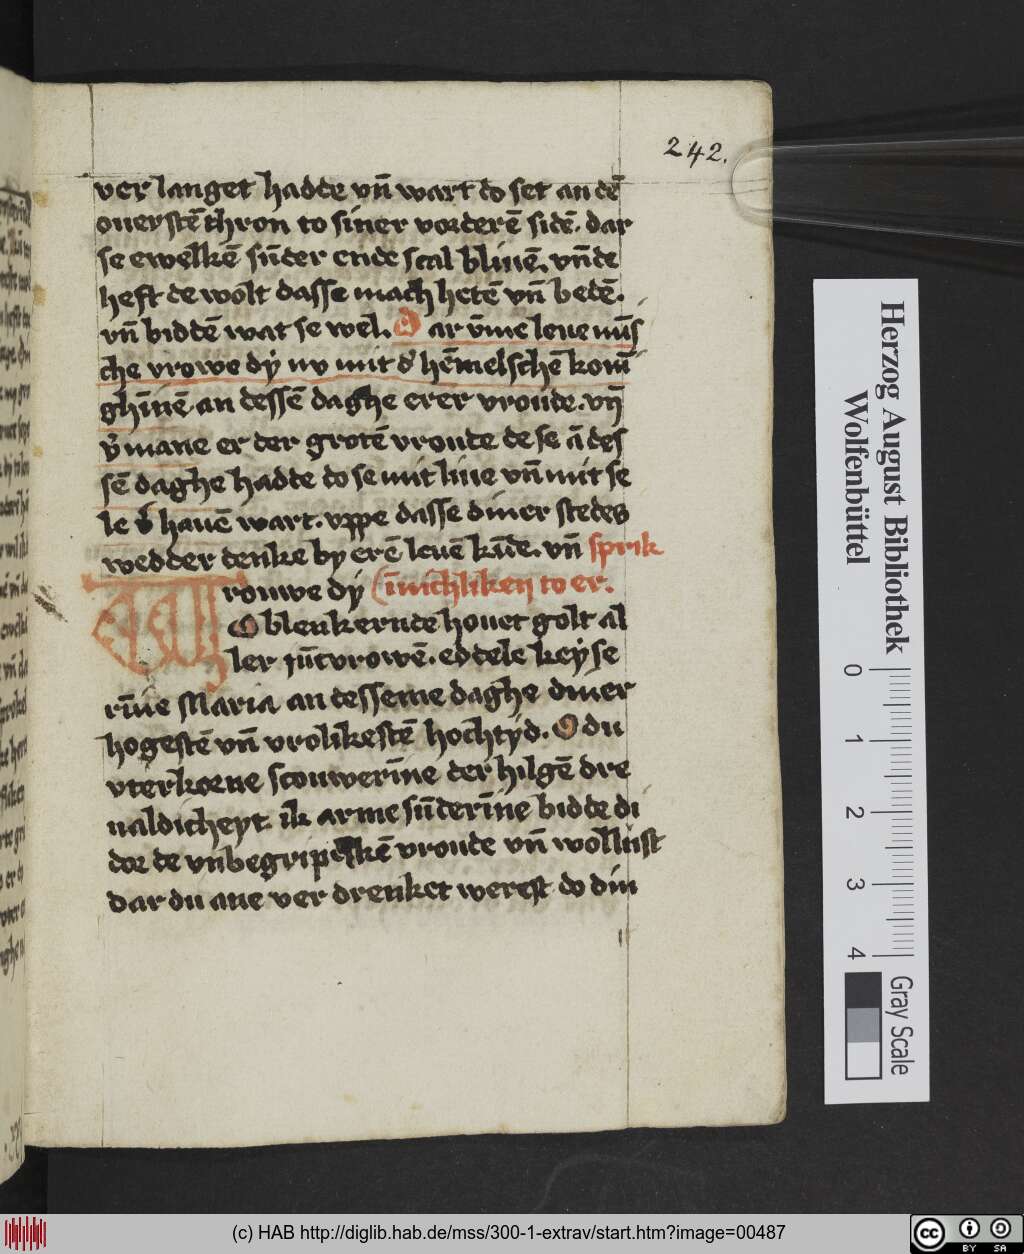 242.
ver langet hadde vn̄ wart do set an dē
ouerstē thron to siner vorderē sidē. dar
se ewelkē sūder ende scal bliuē. vn̄de
heft de wolt dasse mach hetē vn̄ bedē.
vn̄ biddē wat se wel. Dar v̄me leue mīs
che vrowe dy nv mit d' hēmelschē konī
ghīnē an dessē daghe erer vroude. vn̄
v'mane er der grotē vroude de se ā des
sē daghe hadde do se mit liue vn̄ mit se
le v'hauē wart. vppe dasse diner stedes
wedder denke by erē leuē kīde. vn̄ sprik
rouwe dy (īnichliken to er.
O blenkernde houet golt al
ler jūcvrowē. eddele keyse
rīne Maria an desseme daghe diner
hogestē vn̄ vrolikestē hochtyd. O du
vterkorne scouwerīne der hilgē dre
ualdicheyt ik arme sūderīne bidde di
dor de vnbegripelkē vroude vn̄ wollust
dar du ane ver drenket werest do din
Herzog August Bibliothek
Wolfenbüttel
0 1 2 3 4
Gray Scale
(c) HAB http://diglib.hab.de/mss/300-1-extrav/start.htm?image=00487
cc BY SA